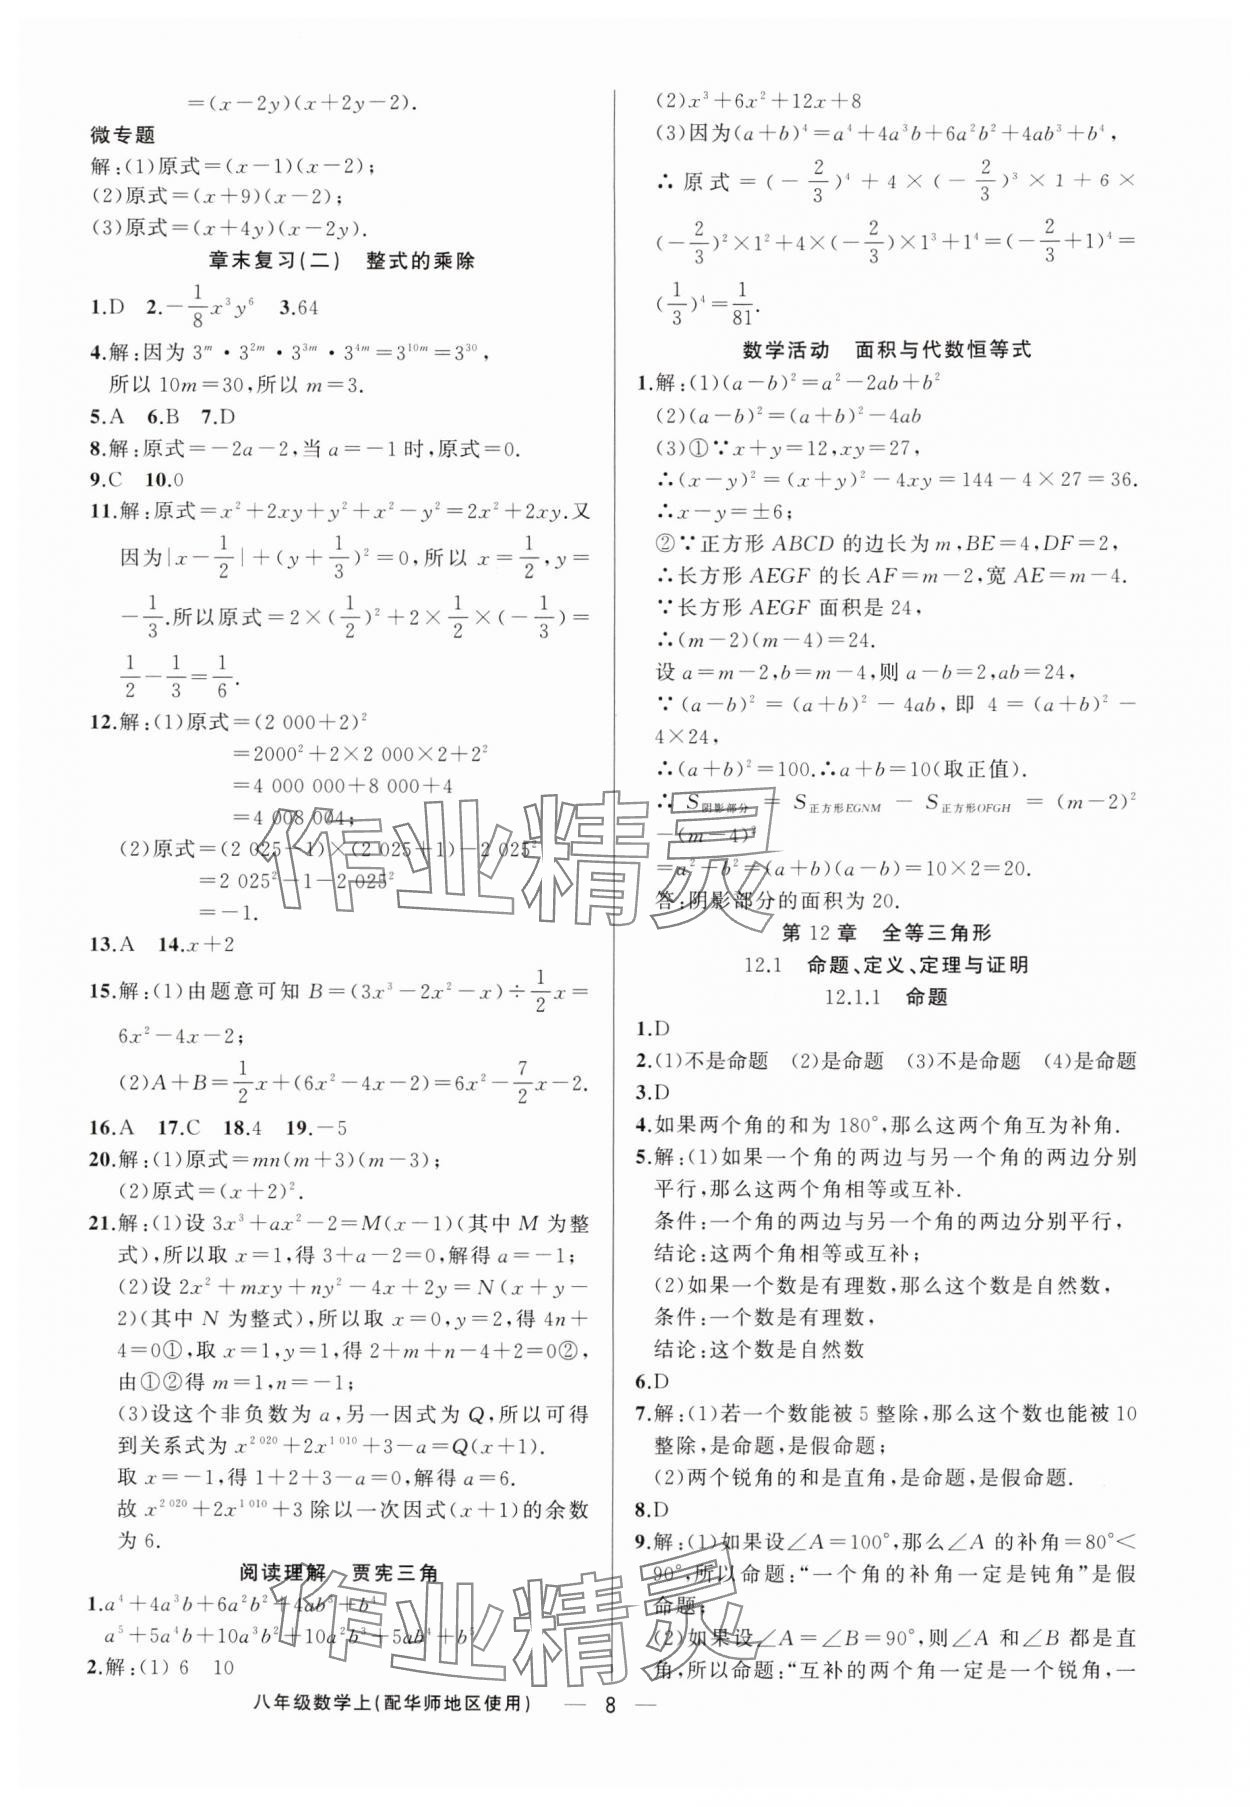 =(x-2y)(x+2y-2).
微专题
解:(1)原式=(x-1)(x-2);
(2)原式=(x+9)(x-2);
(3)原式=(x+4y)(x-2y).
章末复习(二) 整式的乘除
1.D 2.-1/8x³y⁶ 3.64
4.解:因为3ᵐ·3²ᵐ·3³ᵐ·3⁴ᵐ=3¹⁰ᵐ=3³⁰,
所以10m=30,所以m=3.
5.A 6.B 7.D
8.解:原式=-2a-2,当a=-1时,原式=0.
9.C 10.0
11.解:原式=x²+2xy+y²+x²-y²=2x²+2xy.又
因为|x-1/2|+(y+1/3)²=0,所以x=1/2,y=
-1/3.所以原式=2×(1/2)²+2×1/2×(-1/3)=
1/2-1/3=1/6.
12.解:(1)原式=(2 000+2)²
=2000²+2×2 000×2+2²
=4 000 000+8 000+4
=4 008 004;
(2)原式=(2 025-1)×(2 025+1)-2 025²
=2 025²-1-2 025²
=-1.
13.A 14.x+2
15.解:(1)由题意可知B=(3x³-2x²-x)÷1/2x=
6x²-4x-2;
(2)A+B=1/2x+(6x²-4x-2)=6x²-7/2x-2.
16.A 17.C 18.4 19.-5
20.解:(1)原式=mn(m+3)(m-3);
(2)原式=(x+2)².
21.解:(1)设3x³+ax²-2=M(x-1)(其中M为整
式),所以取x=1,得3+a-2=0,解得a=-1;
(2)设2x²+mxy+ny²-4x+2y=N(x+y-
2)(其中N为整式),所以取x=0,y=2,得4n+
4=0①,取x=1,y=1,得2+m+n-4+2=0②,
由①②得m=1,n=-1;
(3)设这个非负数为a,另一因式为Q,所以可得
到关系式为x²⁰²⁰+2x¹⁰¹⁰+3-a=Q(x+1).
取x=-1,得1+2+3-a=0,解得a=6.
故x²⁰²⁰+2x¹⁰¹⁰+3除以一次因式(x+1)的余数
为6.
阅读理解 贾宪三角
1.a⁴+4a³b+6a²b²+4ab³+b⁴
a⁵+5a⁴b+10a³b²+10a²b³+5ab⁴+b⁵
2.解:(1)6 10
(2)x³+6x²+12x+8
(3)因为(a+b)⁴=a⁴+4a³b+6a²b²+4ab³+b⁴,
∴原式=(-2/3)⁴+4×(-2/3)³×1+6×
(-2/3)²×1²+4×(-2/3)×1³+1⁴=(-2/3+1)⁴=
(1/3)⁴=1/81.
数学活动 面积与代数恒等式
1.解:(1)(a-b)²=a²-2ab+b²
(2)(a-b)²=(a+b)²-4ab
(3)①∵x+y=12,xy=27,
∴(x-y)²=(x+y)²-4xy=144-4×27=36.
∴x-y=±6;
②∵正方形ABCD的边长为m,BE=4,DF=2,
∴长方形AEGF的长AF=m-2,宽AE=m-4.
∵长方形AEGF面积是24,
∴(m-2)(m-4)=24.
设a=m-2,b=m-4,则a-b=2,ab=24,
∵(a-b)²=(a+b)²-4ab,即4=(a+b)²-
4×24,
∴(a+b)²=100.∴a+b=10(取正值).
∴S阴影部分=S正方形EGNM-S正方形OFGH=(m-2)²
-(m-4)²
=a²-b²=(a+b)(a-b)=10×2=20.
答:阴影部分的面积为20.
第12章 全等三角形
12.1 命题、定义、定理与证明
12.1.1 命题
1.D
2.(1)不是命题 (2)是命题 (3)不是命题 (4)是命题
3.D
4.如果两个角的和为180°,那么这两个角互为补角.
5.解:(1)如果一个角的两边与另一个角的两边分别
平行,那么这两个角相等或互补.
条件:一个角的两边与另一个角的两边分别平行,
结论:这两个角相等或互补;
(2)如果一个数是有理数,那么这个数是自然数,
条件:一个数是有理数,
结论:这个数是自然数
6.D
7.解:(1)若一个数能被5整除,那么这个数也能被10
整除,是命题,是假命题;
(2)两个锐角的和是直角,是命题,是假命题.
8.D
9.解:(1)如果设∠A=100°,那么∠A的补角=80°<
90°,所以命题:“一个角的补角一定是钝角”是假
命题;
(2)如果设∠A=∠B=90°,则∠A和∠B都是直
角,所以命题:“互补的两个角一定是一个锐角,一
八年级数学上(配华师地区使用) — 8 —
作业精灵
作业精灵